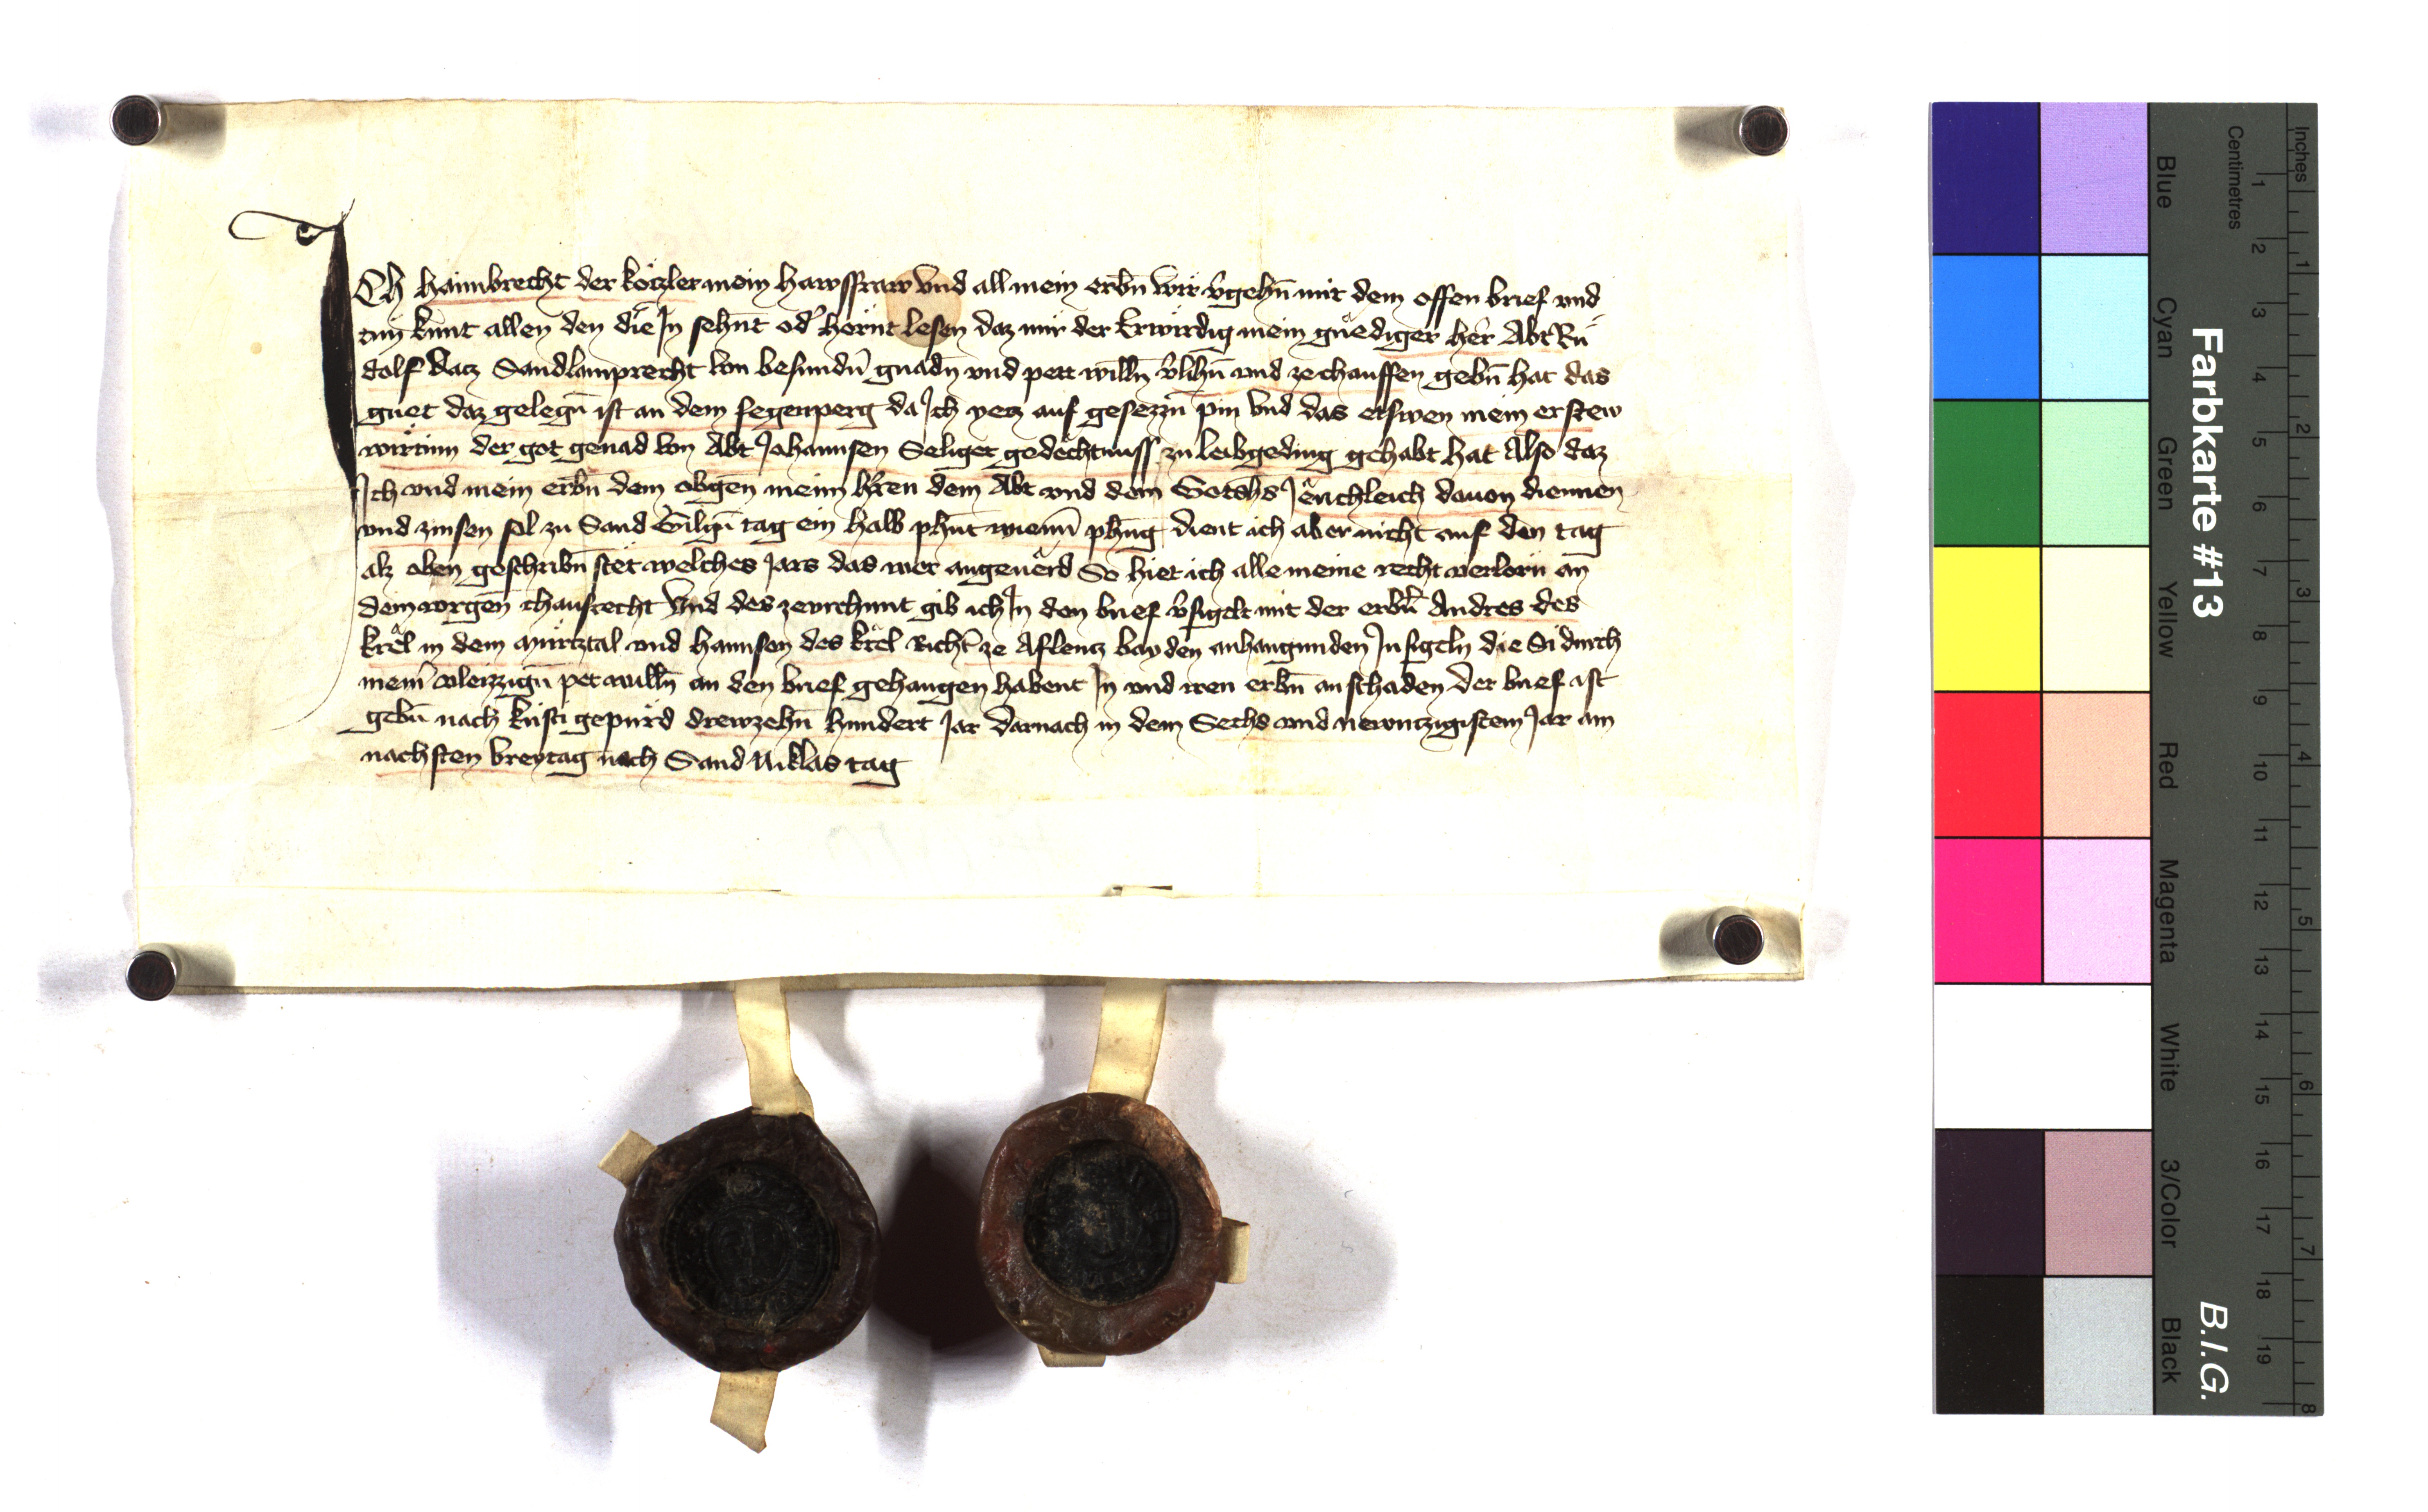 Ich haimbrecht der kötzler mein hawsfraw vnd all mein erbn̄ wir v̄gehn̄ mit dem offen brief vnd
tuͦn kunt allen den die In sehn̄t od' hörn̄t lesen daz mir der Erwirdig mein gnͤediger her Abt Ruͦ
dolf datz Sandlamprecht von besundn̄ gnadn̄ vnd pett willn̄ v̄lihn̄ vnd ze chauffen gebn̄ hat das
guet daz gelegn̄ ist an dem segenperg da Ich yetz auf gesezzn̄ pin vnd das etswen mein erstew
wirtinn der got genad von Abt Johannsen Seliger gedechtnuss zu leibgeding gehabt hat Also daz
Ich vnd mein erbn̄ dem obgen̄ meim hr̄en dem Abt vnd dem Gotshs Jerichleich dauon diennen
vnd zinsen sol zu Sand Gilgn̄ tag ein halb phūt wienn̄ phn̄g dient ich aber nicht auf den tag
alz oben geschribn̄ stet welches Jars das wer angeuerd So hiet ich alle meine recht verlorn̄ an
dem vorgen̄ chaufrecht Vnd des ze vrchunt gib ich In den brief v̄sigelt mit der erbn̄ Andres des
krel in dem Mürtztal vnd hannsen des krel Richt' ze Aflentz bayden anhangunden Insigeln die Si durch
mein̄ vleizzign̄ pet willn̄ an den brief gehangen habent In vnd iren erbn̄ an schaden Der brief ist
gebn̄ nach kristi gepurd drewzehn̄ hundert Jar darnach in dem Sechs vnd newntzigistem Jar am
nachsten vreytag nach Sand Niklas tag
Farbkarte #13
B.I.G.
Inches
Centimetres
1 2 3 4 5 6 7 8 9 10 11 12 13 14 15 16 17 18 19
1 2 3 4 5 6 7 8
Blue
Cyan
Green
Yellow
Red
Magenta
White
3/Color
Black